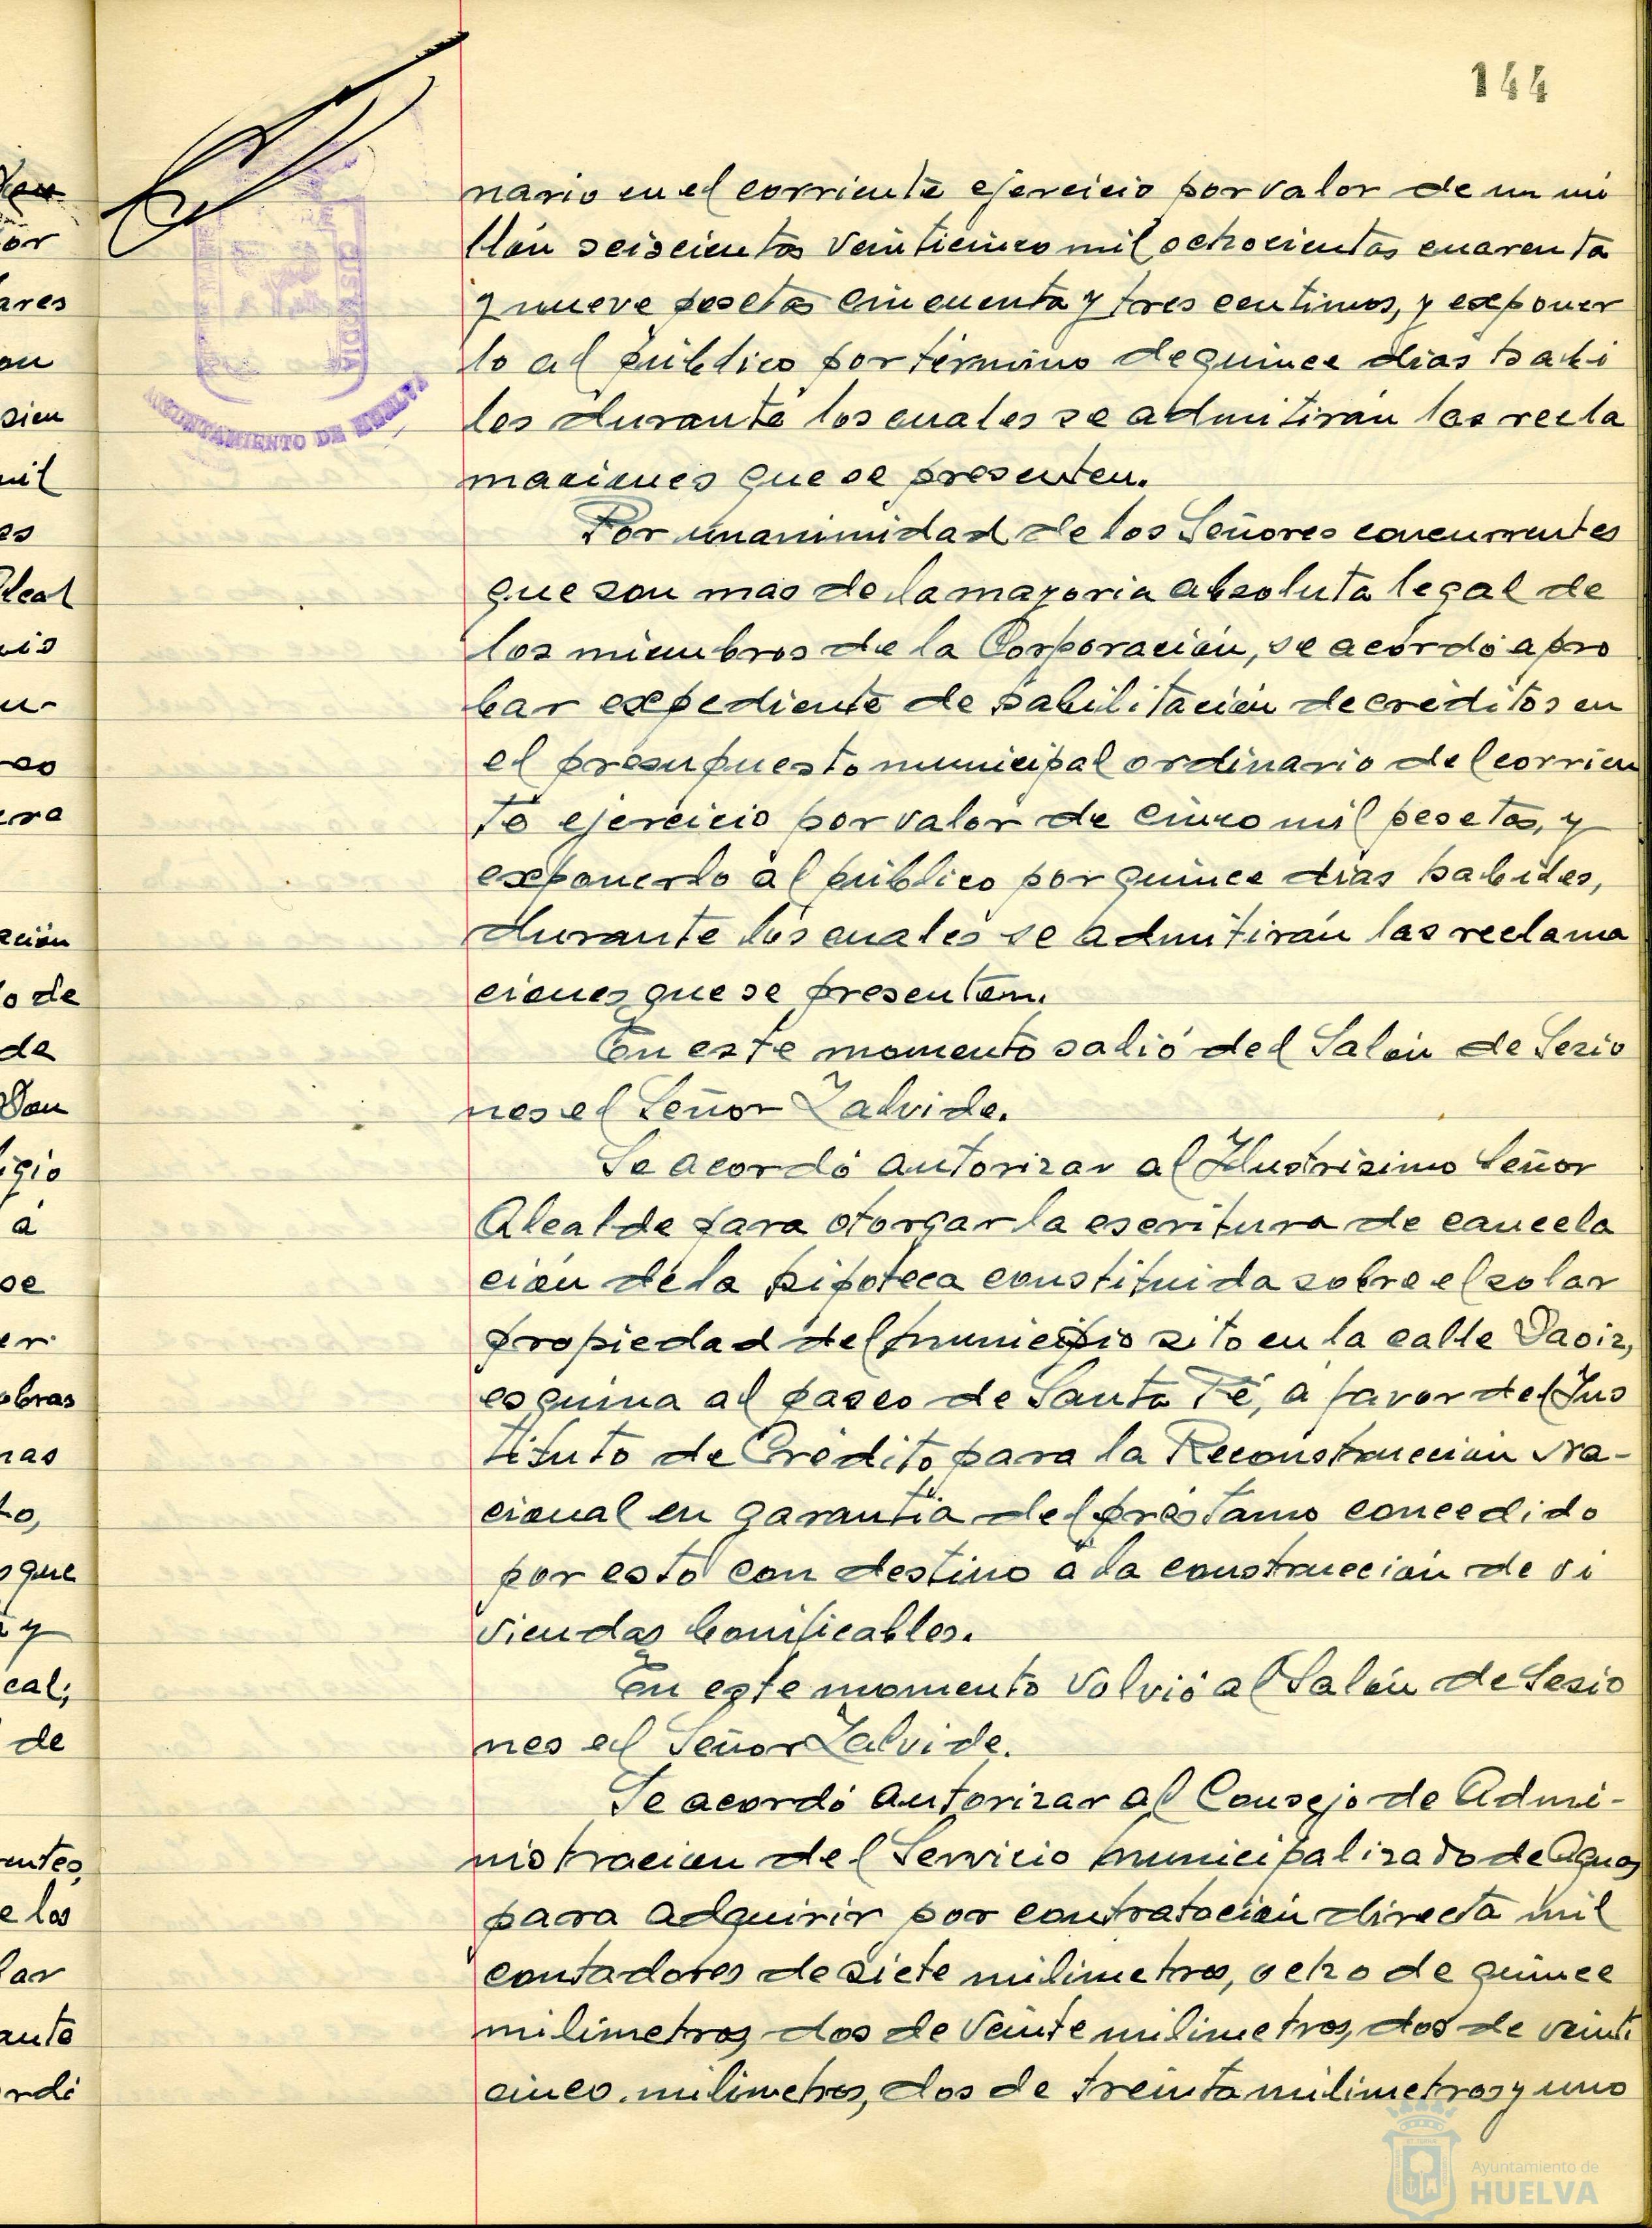 144
nario en el corriente ejercicio por valor de un mi
llón seiscientas veinticinco mil ochocientas cuarenta
y nueve pesetas cincuenta y tres centimos, y exponer
lo al público por término de quince dias habi
les durante los cuales se admitirán las recla
maciones que se presenten.
Por unanimidad de los Señores concurrentes
que son mas de la mayoria absoluta legal de
los miembros de la Corporación, se acordó apro
bar expediente de habilitación de créditos en
el presupuesto municipal ordinario del corrien
te ejercicio por valor de cinco mil pesetas, y
exponerlo al público por quince dias habiles,
durante los cuales se admitirán las reclama
ciones que se presentan.
En este momento salió del Salón de Sesio
nes el Señor Zalvide.
Se acordó autorizar al Ilustrisimo Señor
Alcalde para otorgar la escritura de cancela
ción de la hipoteca constituida sobre el solar
propiedad del municipio sito en la calle Daoiz,
esquina al paseo de Santa Fé, a favor del Ins
tituto de Crédito para la Reconstrucción Na-
cional en garantia del préstamo concedido
por esto con destino a la construcción de vi
viendas bonificables.
En este momento volvió al Salón de Sesio
nes el Señor Zalvide.
Se acordó autorizar al Consejo de Admi-
nistracion del Servicio municipalizado de Aguas
para adquirir por contratación directa mil
contadores de siete milimetros, ocho de quince
milimetros, dos de veinte milimetros, dos de veinti
cinco milimetros, dos de treinta milimetros y uno
or
ares
on
sien
mil
es
cal
is
u-
ación
o de
de
Don
igio
á
se
er
obras
nas
to,
s que
y
cal;
de
entes,
e los
lar
ante
rdi
AYUNTAMIENTO DE HUELVA
CUSTODIA
Ayuntamiento de
HUELVA